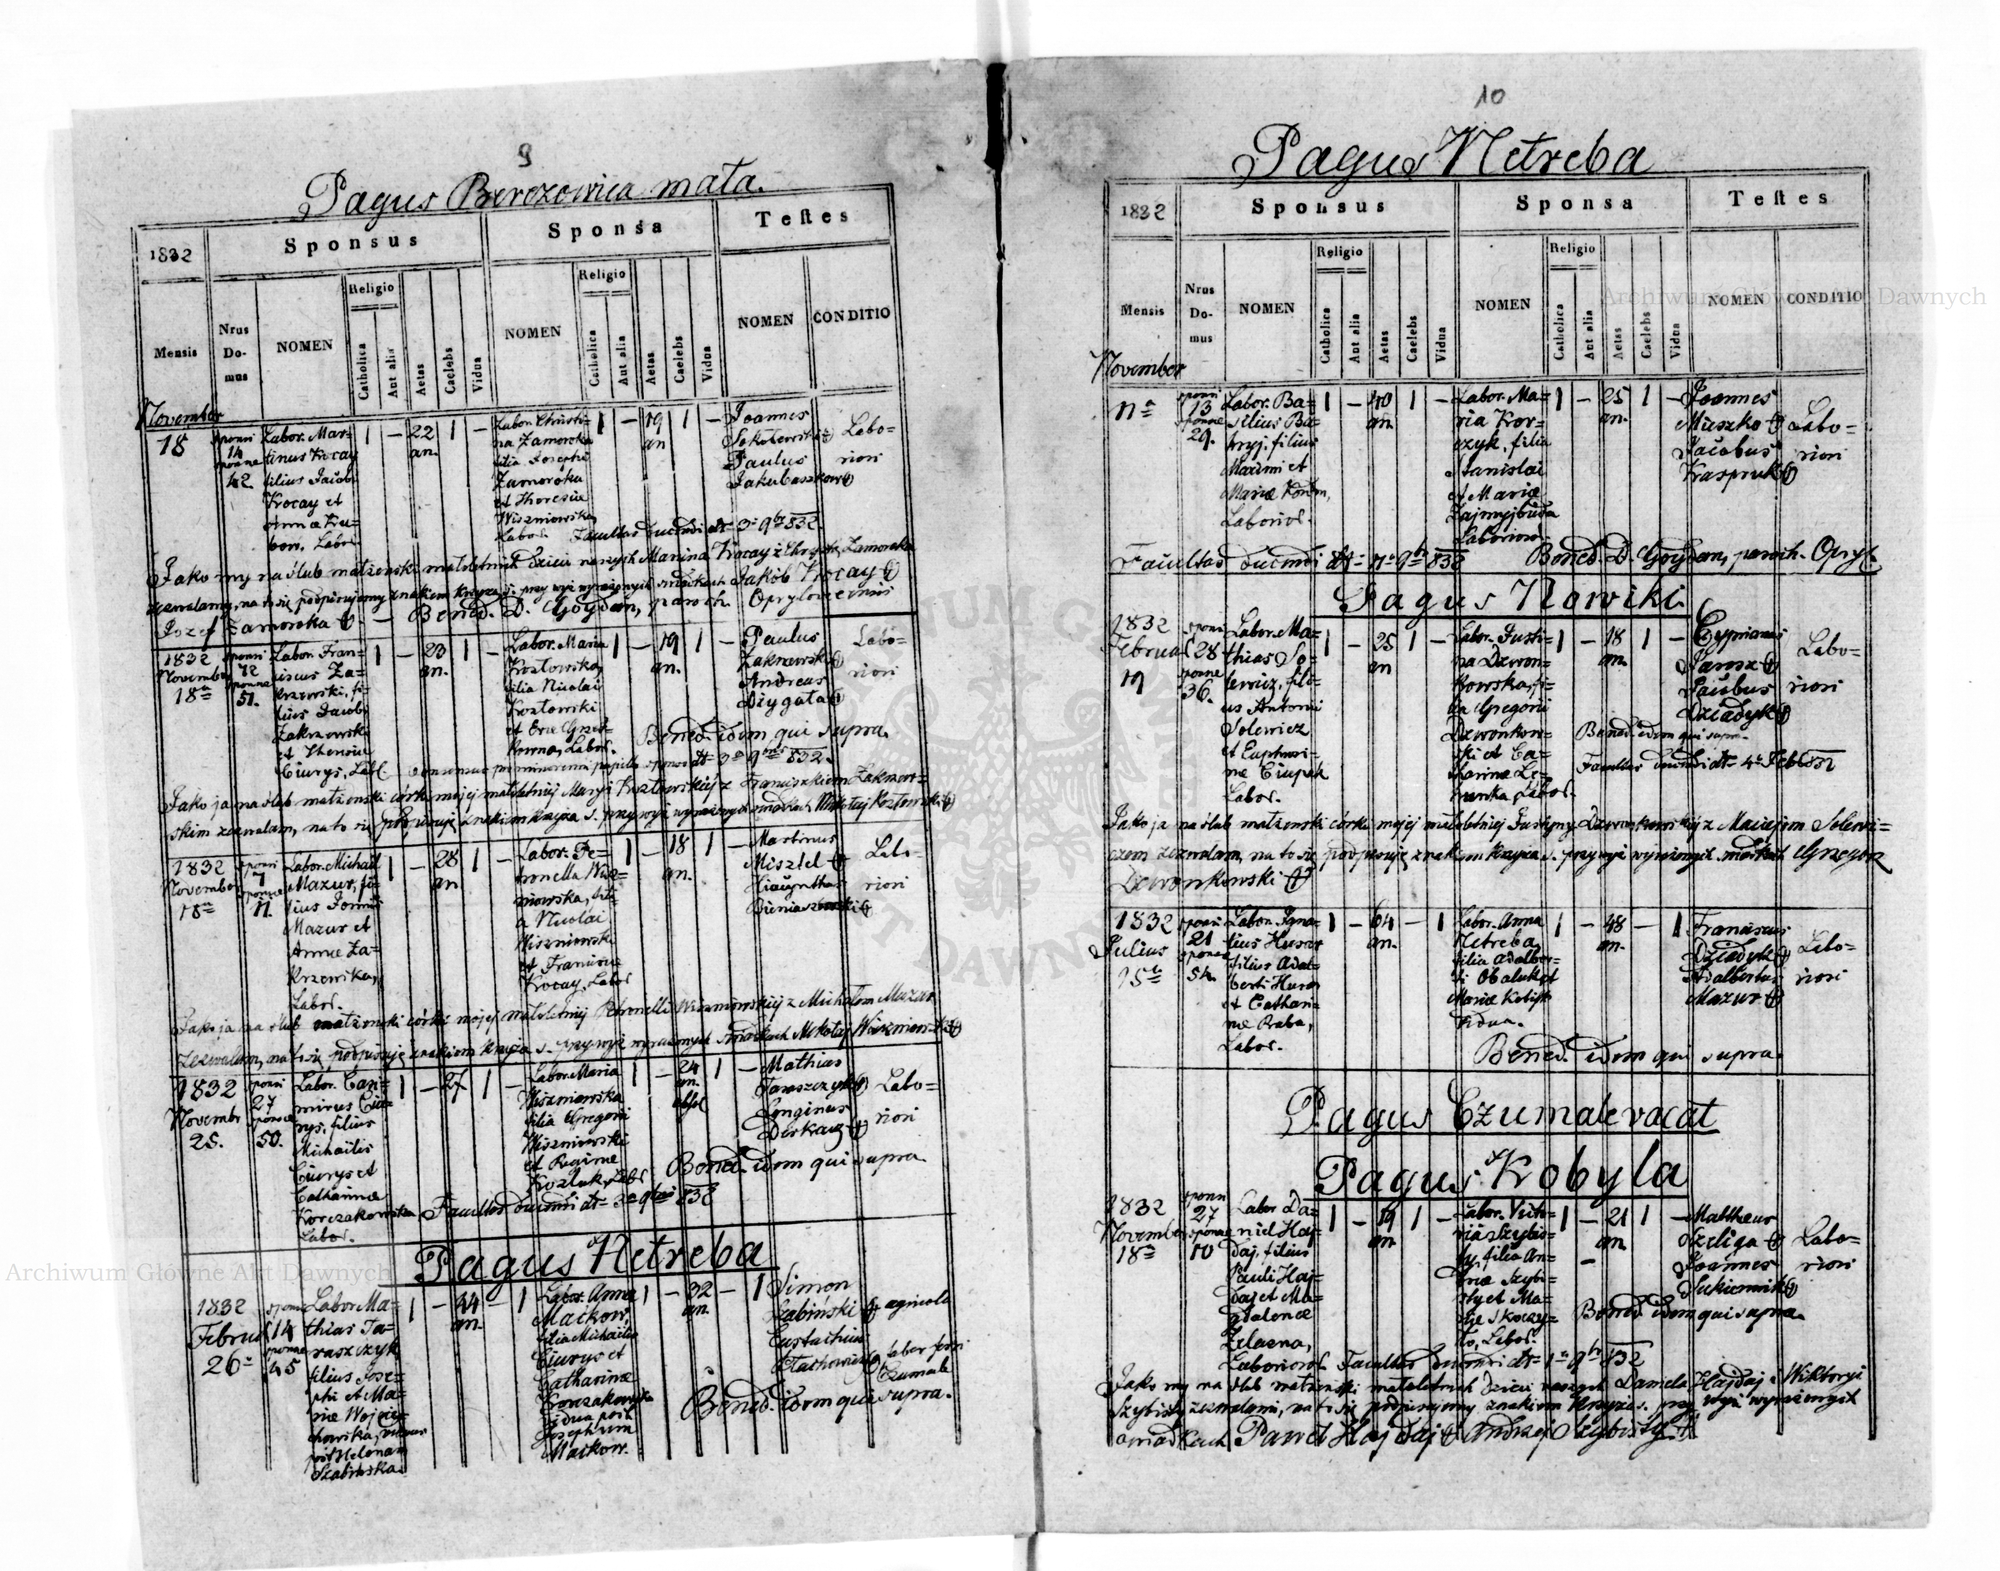 9
Pagus Berezowica mała.
1832
Sponsus
Sponsa
Testes
Mensis
Nrus Domus
NOMEN
Religio
Catholica
Aut alia
Aetas
Caelebs
Vidua
NOMEN
Religio
Catholica
Aut alia
Aetas
Caelebs
Vidua
NOMEN
CONDITIO
November
18
sponsi
14
sponsae
42
Labor. Mar=
tinus Krocay
filius Jacobi
Krocay et
Annae
Labor.
1 — 22 1 —
an.
Labor. Christi=
na Zamorska
filia Josephi
Zamorska
et Theresiae
Wiszniowska
Labor.
1 — 19 1 —
an
Joannes
Paulus
Labo=
riosi
Jako my na ślub małżenski małoletnich dzieci naszych Marcina Krocay z Chryst. Zamorska
zezwalamy, na to się podpisujemy znakiem krzyża S. przy wyż wyrażonych świadkach Jakób Krocay
Jozef Zamorska — Bened. D. Goydan, paroch. Opryłowcensis
1832
November
18
sponsi
72
sponsae
51.
Labor. Fran=
ciscus Za=
krzewski, fi=
lius Jacobi
Zakrzewski
et Theresiae
Ciurys, Lab.
1 — 23 1 —
an.
Labor. Maria
Kozłowska
filia Nicolai
Kozłowski
et Evae
Labor.
1 — 19 1 —
an.
Paulus
Zakrzewski
Andreas
Dzygała
Labo=
riosi
Bened. idem qui supra.
Jako ja na ślub małżenski córki mojej małoletniej Maryi Kozłowskiej z Franciszkiem Zakrzew=
skim zezwalam, na to się podpisuję znakiem krzyża S. przy wyż wyrażonych świadkach Mikołaj Kozłowski
1832
November
18
sponsi
7
sponsae
11.
Labor. Michael
Mazur, fi=
lius Joannis
Mazur et
Annae Za=
krzewska,
Labor.
1 — 28 1 —
an.
Labor. Pe=
tronella Wisz=
niowska, fili=
a Nicolai
Wiszniowski
et Franciscae
Krocay, Labor
1 — 18 1 —
an.
Martinus
Misztel
Hiacynthus
Bieniaszewski
Labo=
riosi
Jako ja na ślub małżenski córki mojej małoletniej Petronelli Wiszniowskiej z Michałem Mazur
zezwalam, na to się podpisuję znakiem krzyża S. przy wyż wyrażonych świadkach Mikołaj Wiszniowski
1832
Novembr
25.
sponsi
27
sponsae
50.
Labor. Casi=
mirus Ciu=
rys, filius
Michaelis
Ciurys et
Catharinae
Korczakowska
Labor.
1 — 27 1
Labor. Maria
Wiszniowska
filia Gregorii
Wiszniowski
et Reginae
1 — 24 1 —
an.
Mathias
Taraszczyk
Longinus
Labo=
riosi
Bened. idem qui supra.
Pagus Netreba
1832
Februar
26
sponsi
14
sponsae
45
Labor. Ma=
thias Ta=
raszczyk
filius Jose=
phi et Ma=
riae Wojcie=
chowska, viduus
post Helenam
Szabinska
1 — 44 — 1
an.
Labor. Anna
Maćkow,
filia Michaelis
Ciurys et
Catharinae
Korczakowska
vidua post
Josephum
Maćkow.
1 — 32 — 1
an.
Simon
Szabiński
Eustachius
Stachowicz
agricola
labor. ferri
Czumale
Bened. idem qui supra.
10
Pagus Netreba
1832
Sponsus
Sponsa
Testes
Mensis
Nrus Domus
NOMEN
Religio
Catholica
Aut alia
Aetas
Caelebs
Vidua
NOMEN
Religio
Catholica
Aut alia
Aetas
Caelebs
Vidua
NOMEN
CONDITIO
November
11
sponsi
13
sponsae
29.
Labor. Ba=
silius Ba=
filius
Maximi et
Mariae
Laborios.
1 — 40 1 —
an.
Labor. Ma=
ria Kor=
czyk, filia
Stanislai
et Mariae
Laborios.
1 — 25 1 —
an.
Joannes
Mieszko
Jacobus
Kaspruk
Labo=
riosi
Facultas ducendi dt 11 9br 832 Bened. D. Goydan, paroch. Opryl.
Pagus Nowiki
1832
Februar
19
sponsi
28
sponsae
36.
Labor. Ma=
thias So=
lewicz, fili=
us Antonii
Solewicz
et Euphrosi=
nae Ciupek
Labor.
1 — 25 1 —
an
Labor. Justi=
na Dzwon=
kowska, fi=
lia Gregorii
Dzwonkow=
ski et Ca=
tharinae
Labor.
1 — 18 1 —
an.
Cyprianus
Jarosz
Jacobus
Dziadyk
Labo=
riosi
Bened. idem qui supra.
Facultas ducendi dt 4 Feb 832
Jako ja na ślub małżenski córki mojej małoletniej Justyny Dzwonkowskiej z Maciejem Solewi=
czem zezwalam, na to się podpisuję znakiem krzyża S. przy wyż wyrażonych świadkach Grzegorz
Dzwonkowski
1832
Julius
15
sponsi
21
sponsae
54.
Labor. Igna=
tius Husar
filius Adal=
berti Husar
et Cathari=
nae Baba,
Labor.
1 — 64 — 1
an.
Labor. Anna
Netreba,
filia Adalber=
ti Obaluk et
Mariae
vidua.
1 — 48 — 1
an.
Franciscus
Dziadyk
Adalbertus
Mazur
Labo=
riosi
Bened. idem qui supra.
Pagus Czumale vacat
Pagus Kobyla
1832
November
18
sponsi
27
sponsae
10
Labor. Da=
niel Haj=
daj, filius
Pauli Haj=
daj et Ma=
gdalenae
Zelazna,
Laborios.
1 — 19 1 —
an.
Labor. Victo=
ria Szybis=
ty, filia An=
dreae Szybi=
sty et Ma=
Skoczy=
Labor.
1 — 21 1 —
an.
Mathaeus
Szeliga
Joannes
Sukiennik
Labo=
riosi
Bened. idem qui supra.
Facultas ducendi dt 1 9br 832
Jako my na ślub małżenski małoletnich dzieci naszych Daniela Hajdaj i Wiktoryi
Szybisty zezwalamy, na to się podpisujemy znakiem krzyża S. przy wyż wyrażonych
świadkach Paweł Hajdaj Andrzej Szybisty
Archiwum Główne Akt Dawnych
Archiwum Główne Akt Dawnych